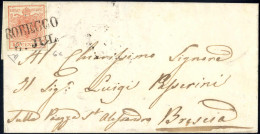 ROBECCO
JUL.
Al Chiarissimo Signore
Il Sig. Luigi Paperini
Sulla Piazza St. Alessandro Brescia